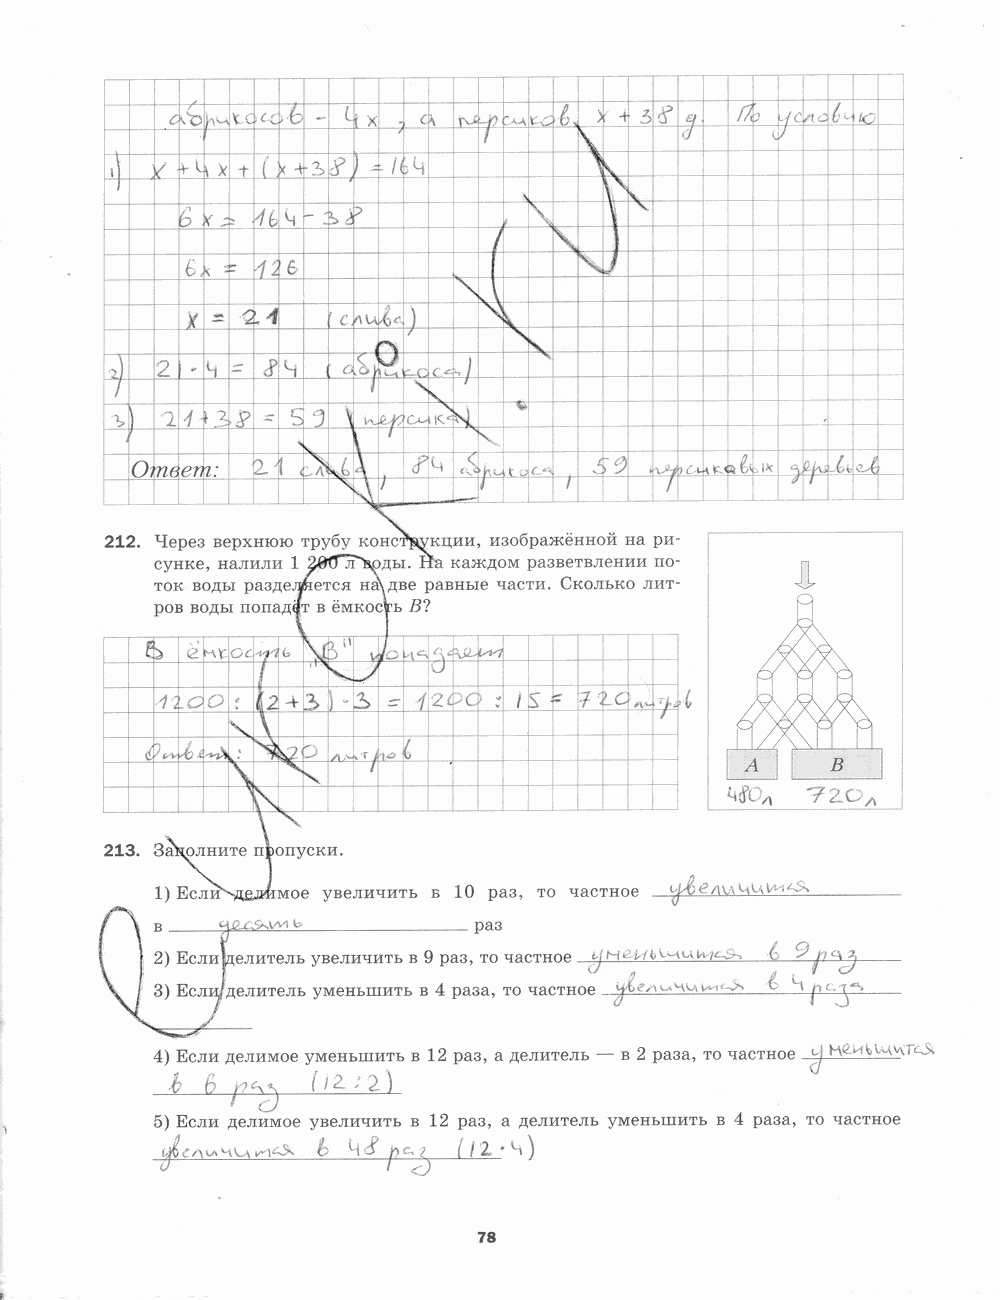 абрикосов - 4x, а персиков x + 38 д. По условию
1) x + 4x + (x + 38) = 164
6x = 164 - 38
6x = 126
x = 21 (слива)
2) 21 · 4 = 84 (абрикоса)
3) 21 + 38 = 59 (персика)
Ответ: 21 слива, 84 абрикоса, 59 персиковых деревьев
212. Через верхнюю трубу конструкции, изображённой на ри-
сунке, налили 1 200 л воды. На каждом разветвлении по-
ток воды разделяется на две равные части. Сколько лит-
ров воды попадёт в ёмкость B?
В ёмкость „В" попадает
1200 : (2 + 3) · 3 = 1200 : 15 = 720 литров
Ответ: 720 литров
A B
480л 720л
213. Заполните пропуски.
1) Если делимое увеличить в 10 раз, то частное увеличится
в десять раз
2) Если делитель увеличить в 9 раз, то частное уменьшится в 9 раз
3) Если делитель уменьшить в 4 раза, то частное увеличится в 4 раза
4) Если делимое уменьшить в 12 раз, а делитель — в 2 раза, то частное уменьшится
в 6 раз (12:2)
5) Если делимое увеличить в 12 раз, а делитель уменьшить в 4 раза, то частное
увеличится в 48 раз (12·4)
78